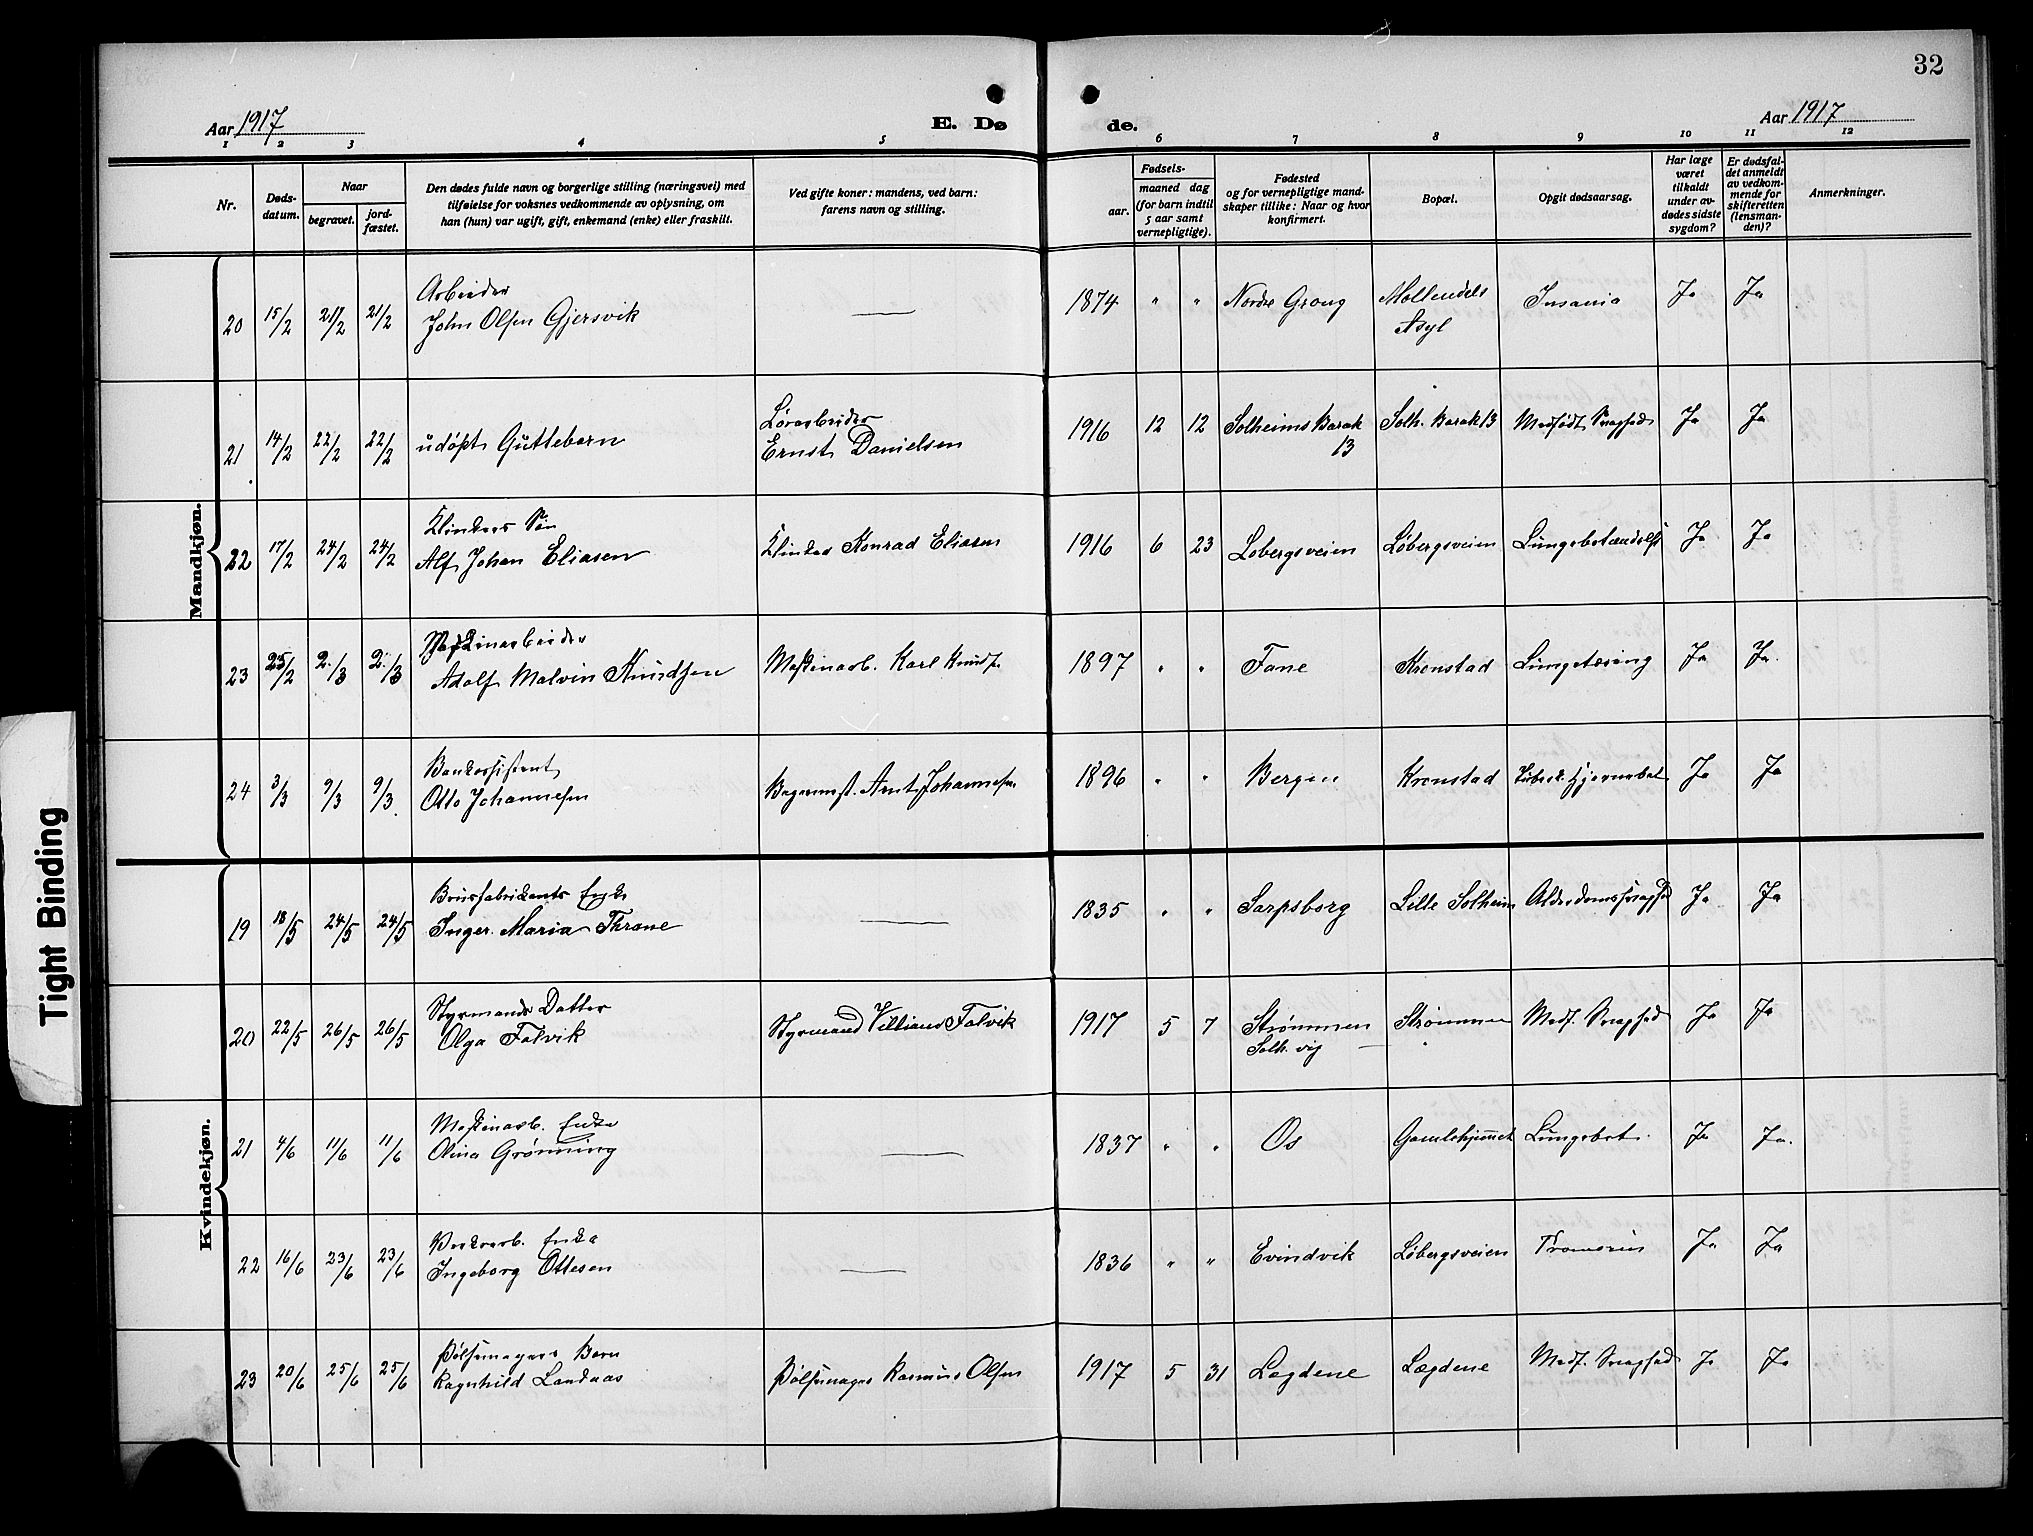 32
Aar 1917
E. Dø
de.
Aar 1917
1 2 3 4 5 6 7 8 9 10 11 12
Nr.
Døds-
datum.
Naar
begravet.
jord-
fæstet.
Den dødes fulde navn og borgerlige stilling (næringsvei) med
tilføielse for voksnes vedkommende av oplysning, om
han (hun) var ugift, gift, enkemand (enke) eller fraskilt.
Ved gifte koner: mandens, ved barn:
farens navn og stilling.
Fødsels-
aar.
maaned dag
(for barn indtil
5 aar samt
vernepligtige).
Fødested
og for vernepligtige mand-
skaper tillike: Naar og hvor
konfirmert.
Bopæl.
Opgit dødsaarsag.
Har læge
været
tilkaldt
under av-
dødes sidste
sygdom?
Er dødsfal-
det anmeldt
av vedkom-
mende for
skifteretten
(lensman-
den)?
Anmerkninger.
Mandkjøn.
Arbeider
20 15/2 21/2 21/2 John Olsen Gjersvik — 1874 " " Nordre Grong Møllendals Insania Ja Ja
Asyl
Løsarbeider
21 14/2 22/2 22/2 udøpt Guttebarn Ernst Danielsen 1916 12 12 Solheims Barak Solh. Barak 13 Medfødt Svaghed Ja Ja
13
Klinkers Søn
22 17/2 24/2 24/2 Alf Johan Eliasen Klinker Konrad Eliasen 1916 6 23 Løbergsveien Løbergsveien Lungebetændelse Ja Ja
Maskinarbeider
23 25/2 2./3 2./3 Adolf Malvin Knudsen Maskinarb. Karl Knuds. 1897 " " Fane Kronstad Lungetæring Ja Ja.
Bankassistent
24 3/3 9/3 9/3. Otto Johannesen Bagermst. Arnt Johannesen 1896 " " Bergen Kronstad Tuberk. Hjernebet. Ja Ja
Kvindekjøn.
Brusfabrikants Enke
19 18/5 24/5 24/5 Inger Maria Throne — 1835 " " Sarpsborg Lille Solheim Alderdomssvaghed Ja Ja
Styrmands Datter
20 22/5 26/5 26/5 Olga Falvik Styrmand Falvik 1917 5 7 Strømmen Strømmen Medf. Svaghed Ja Ja
Solh. vig
Maskinarb. Enke
21 4/6 11/6 11/6 Olina Grønning — 1837 " " Os Gamlehjemmet Lungebet. Ja Ja.
Enke
22 16/6 23/6 23/6 Ingeborg Ottesen — 1836 " " Evindvik Løbergsveien Ja Ja
Pølsemagers Barn
23 20/6 25/6 25/6 Ragnhild Landaas Pølsemager Rasmus Olsen 1917 5 31 Lægdene Lægdene Medf. Svaghed Ja Ja
Tight Binding